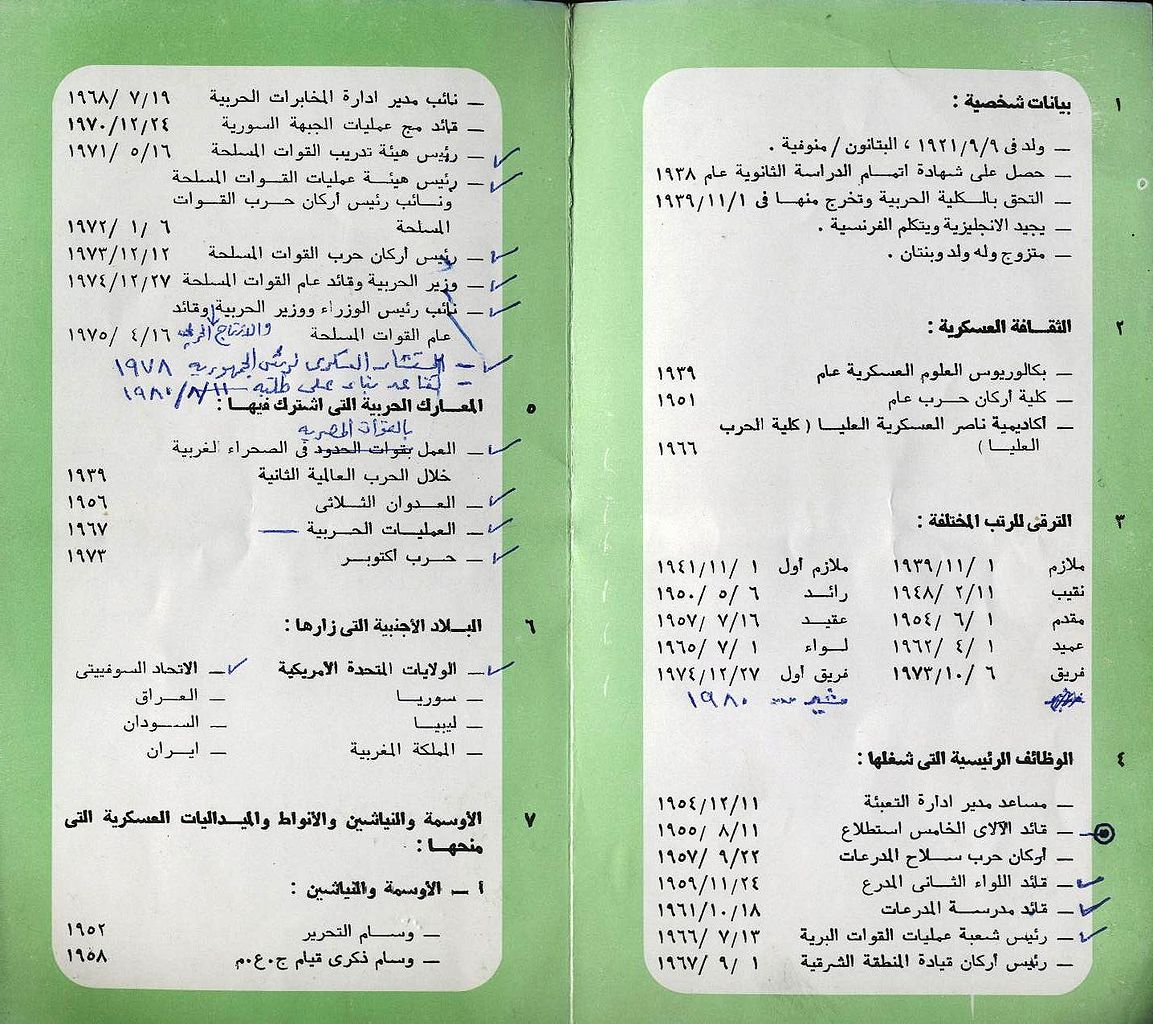 ١ بيانات شخصية :
ــ ولد فى ١٩٢١/٩/٩ ، البتانون / منوفية .
ــ حصل على شهادة اتمـــام الدراسة الثانوية عام ١٩٣٨
ــ التحق بالـــكلية الحربية وتخرج منهـا فى ١٩٣٩/١١/١
ــ يجيد الانجليزية ويتكلم الفرنسية .
ــ متزوج وله ولد وبنتان .
٢ الثقــافة العسكرية :
ــ بكالوريوس العلوم العسكرية عام ١٩٣٩
ــ كلية أركان حـــرب عام ١٩٥١
ــ أكاديمية ناصر العسكرية العليـا ( كلية الحرب
العليـــا ) ١٩٦٦
٣ الترقى للرتب المختلفة :
ملازم ١ /١٩٣٩/١١ ملازم أول ١ /١٩٤١/١١
نقيب ١٩٤٨/ ٢/١١ رائــد ٦ /٥ /١٩٥٠
مقدم ١ /٦ /١٩٥٤ عقيــد ١٩٥٧/ ٧/١٦
عميد ١ /٤ /١٩٦٢ لـــواء ١ /٧ /١٩٦٥
فريق ٦ /١٩٧٣/١٠ فريق أول ١٩٧٤/١٢/٢٧
مشير ١٩٨٠
٤ الوظائف الرئيسية التى شغلها :
ــ مساعد مدير ادارة التعبئة ١٩٥٤/١٢/١١
ــ قائد الآلاى الخامس استطلاع ١٩٥٥/ ٨/١١
ــ أركان حرب ســـلاح المدرعات ١٩٥٧/ ٩/٢٢
ــ قائد اللواء الثـــانى المدرع ١٩٥٩/١١/٢٤
ــ قائد مدرســـة المدرعات ١٩٦١/١٠/١٨
ــ رئيس شعبة عمليات القوات البرية ١٩٦٦/ ٧/١٣
ــ رئيس أركان قيادة المنطقة الشرقية ١ /٩ /١٩٦٧
ــ نائب مدير ادارة المخابرات الحربية ١٩٦٨/ ٧/١٩
ــ قائد مج عمليات الجبهة السورية ١٩٧٠/١٢/٢٤
ــ رئيس هيئة تدريب القوات المسلحة ١٩٧١/ ٥/١٦
ــ رئيس هيئـــة عمليات القـــوات المسلحة
ونـــائب رئيس أركان حـــرب القـــوات
المسلحة ٦ /١ /١٩٧٢
ــ رئيس أركان حرب القوات المسلحة ١٩٧٣/١٢/١٢
ــ وزير الحربية وقائد عام القوات المسلحة ١٩٧٤/١٢/٢٧
ــ نائب رئيس الوزراء ووزير الحربية وقائد
والإنتاج الحربى
عام القوات المسلحة ١٩٧٥/ ٤/١٦
ــ المستشار العسكرى لرئيس الجمهورية ١٩٧٨
ــ تقاعد بناء على طلبه ١٩٨٠/٨/١١
٥ المعــارك الحربية التى اشترك فيهــا :
بالقوات المصرية
ــ العمل بقوات الحدود فى الصحراء الغربية
خلال الحرب العالمية الثانية ١٩٣٩
ــ العـــدوان الثـــلاثى ١٩٥٦
ــ العمليـــات الحـــربية ١٩٦٧
ــ حـــرب أكتوبـــر ١٩٧٣
٦ البـــلاد الأجنبية التى زارها :
ــ الولايات المتحدة الأمريكية ــ الاتحاد السوفييتى
ــ سوريـــا ــ العـــراق
ــ ليبيـــا ــ الســـودان
ــ المملكة المغربية ــ ايـــران
٧ الأوسمة والنياشين والأنواط والميـداليات العسكرية التى
منحهـــا :
أ ــ الأوسمة والنياشين :
ــ وســـام التحرير ١٩٥٢
ــ وسام ذكرى قيام ج.ع.م ١٩٥٨